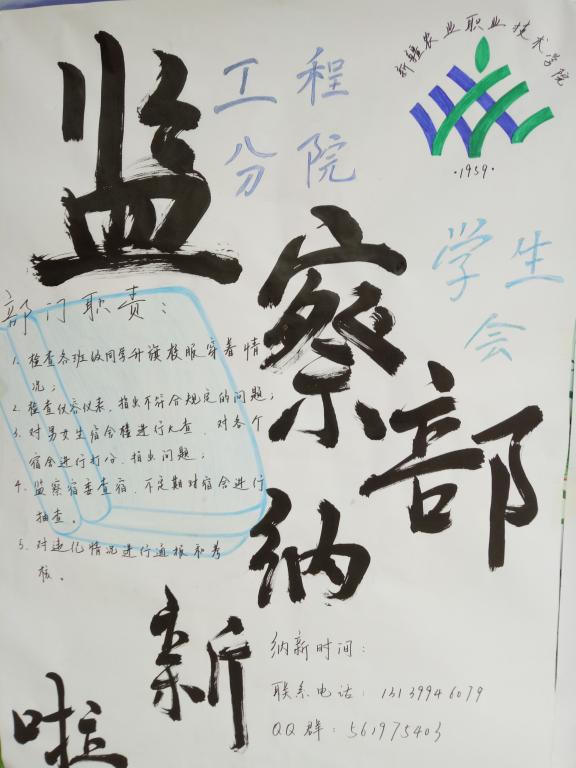 新疆农业职业技术学院
·1959·
工程
分院
学生
会
监察部
纳新啦
部门职责：
1. 检查各班级同学升旗校服穿着情
况；
2. 检查仪容仪表，指出不符合规定的问题；
3. 对男女生宿舍楼进行大查，对各个
宿舍进行打分，指出问题；
4. 监察宿委查宿，不定期对宿舍进行
抽查。
5. 对违纪情况进行通报和考
核。
纳新时间：
联系电话：13139946079
QQ群：561975403